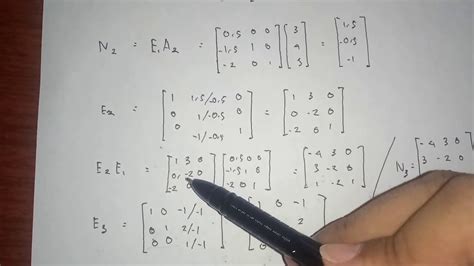 N₂ = E₁A₂ = [0,5 0 0; -1,5 1 0; -2 0 1] [3; 4; 5] = [1,5; -0,5; -1]
E₂ = [1 1,5/-0,5 0; 0 1/-0,5 0; 0 -1/-0,5 1] = [1 3 0; 0 -2 0; -2 0 1]
E₂E₁ = [1 3 0; 0 -2 0; -2 0] [0,5 0 0; -1,5 1 0; -2 0 1] = [-4 3 0; 3 -2 0; 1 -2 1]
N₃ = [-4 3 0; 3 -2 0
E₃ = [1 0 -1/-1; 0 1 2/-1; 0 0 1/-1] [1 0 -1; 0 2; 0